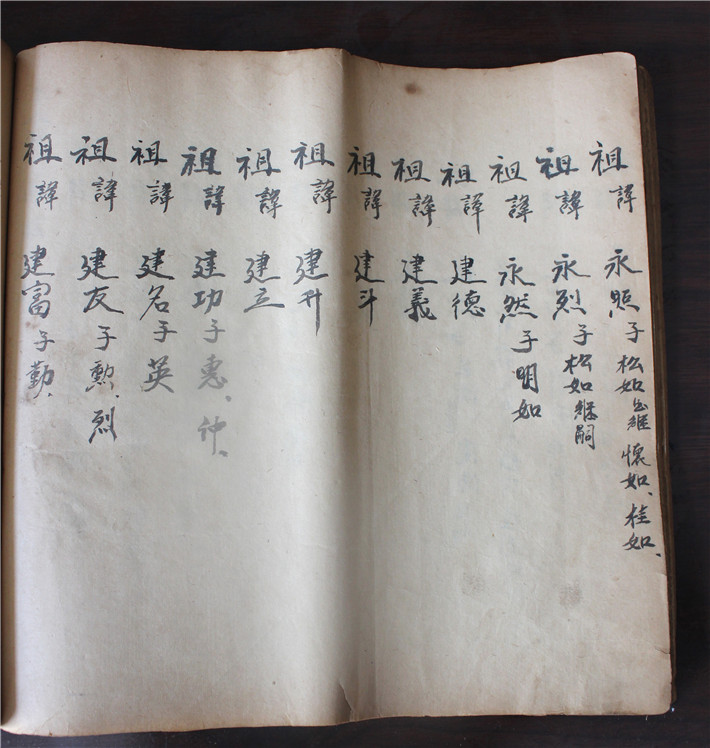 祖諱永照子松如出繼懷如、桂如、
祖諱永烈子松如繼嗣
祖諱永然子明如
祖諱建德
祖諱建義
祖諱建斗
祖諱建升
祖諱建立
祖諱建功子惠、仲、
祖諱建名子英
祖諱建友子勲、烈
祖諱建富子勤、